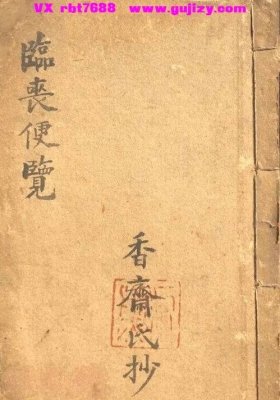 VX rbt7688 www.gujizy.com
臨喪便覽
香齋氏抄